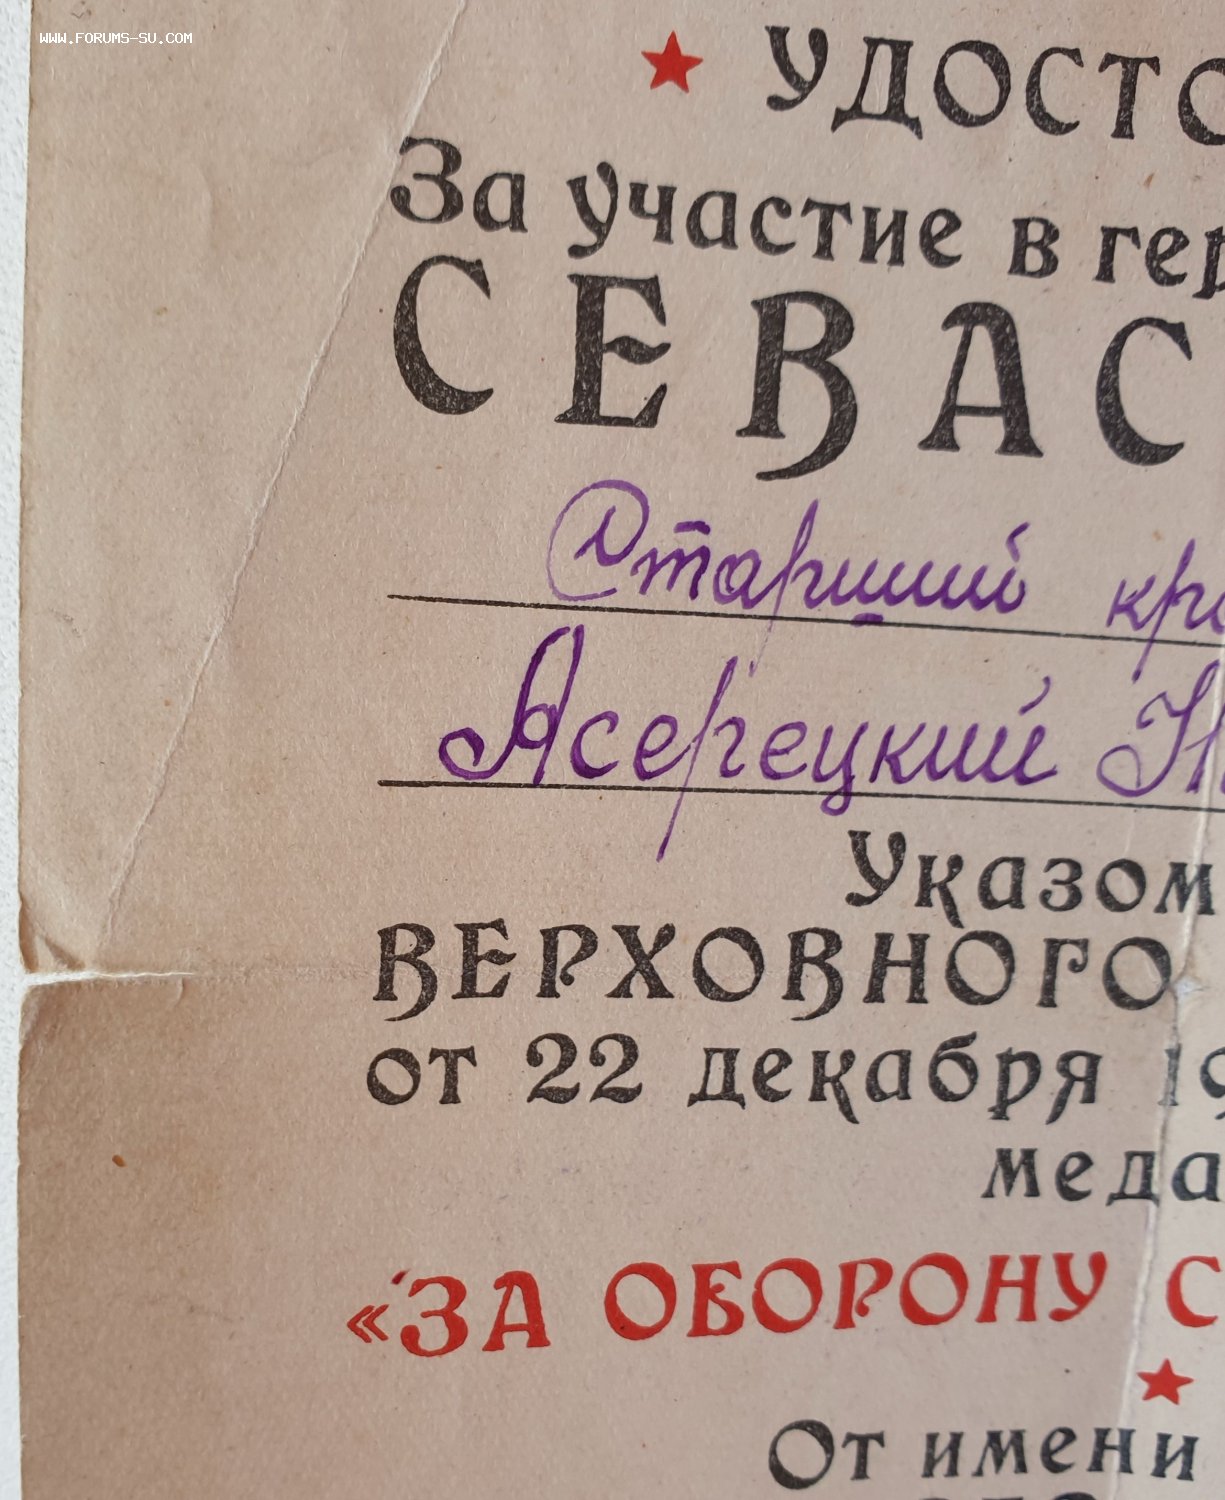 www.forums-su.com
УДОСТО
За участие в гер
СЕВАС
Старший кра
Ясерецкий Н
Указом
ВЕРХОВНОГО
от 22 декабря 19
меда
«ЗА ОБОРОНУ С
От имени